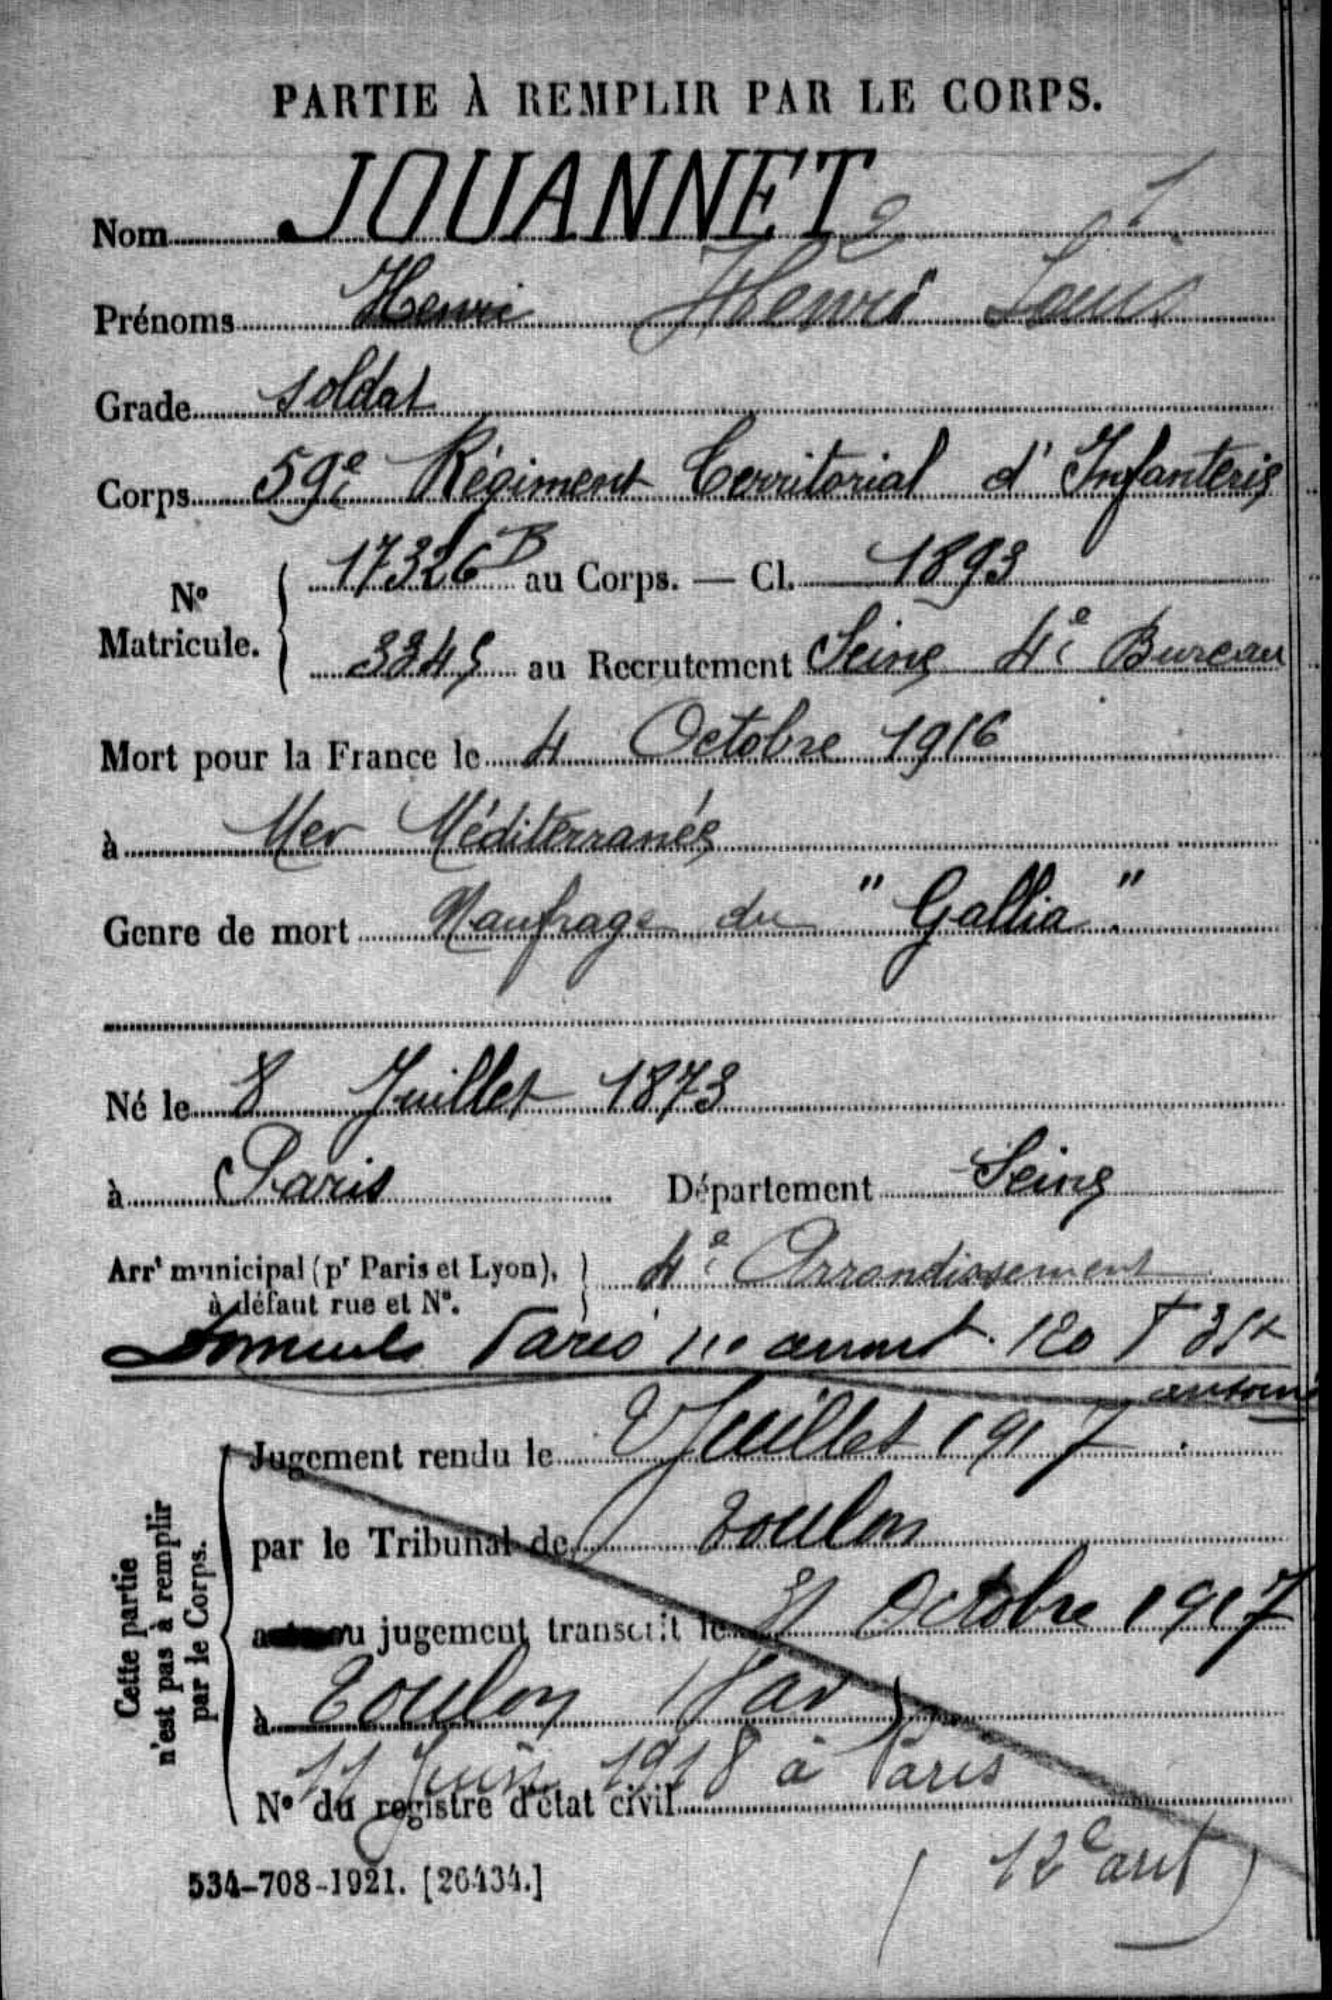 PARTIE À REMPLIR PAR LE CORPS.
Nom JOUANNET
Prénoms Henri Henri Louis
Grade soldat
Corps 59e Régiment Territorial d'Infanterie
No Matricule. 17326 B au Corps. — Cl. 1893
3345 au Recrutement Seine 4e Bureau
Mort pour la France le 4 Octobre 1916
à Mer Méditerranée
Genre de mort Naufrage du "Gallia".
Né le 8 Juillet 1873
à Paris Département Seine
Arrt municipal (pr Paris et Lyon), à défaut rue et No. 4e Arrondissement
Paris 120 St
Cette partie n'est pas à remplir par le Corps.
Jugement rendu le Juillet 1917
par le Tribunal de Toulon
ou jugement transcrit le 31 Octobre 1917
à Toulon (Var)
11 Juin 1918 à Paris
No du registre d'état civil
(12e arrt)
534-708-1921. [26434.]